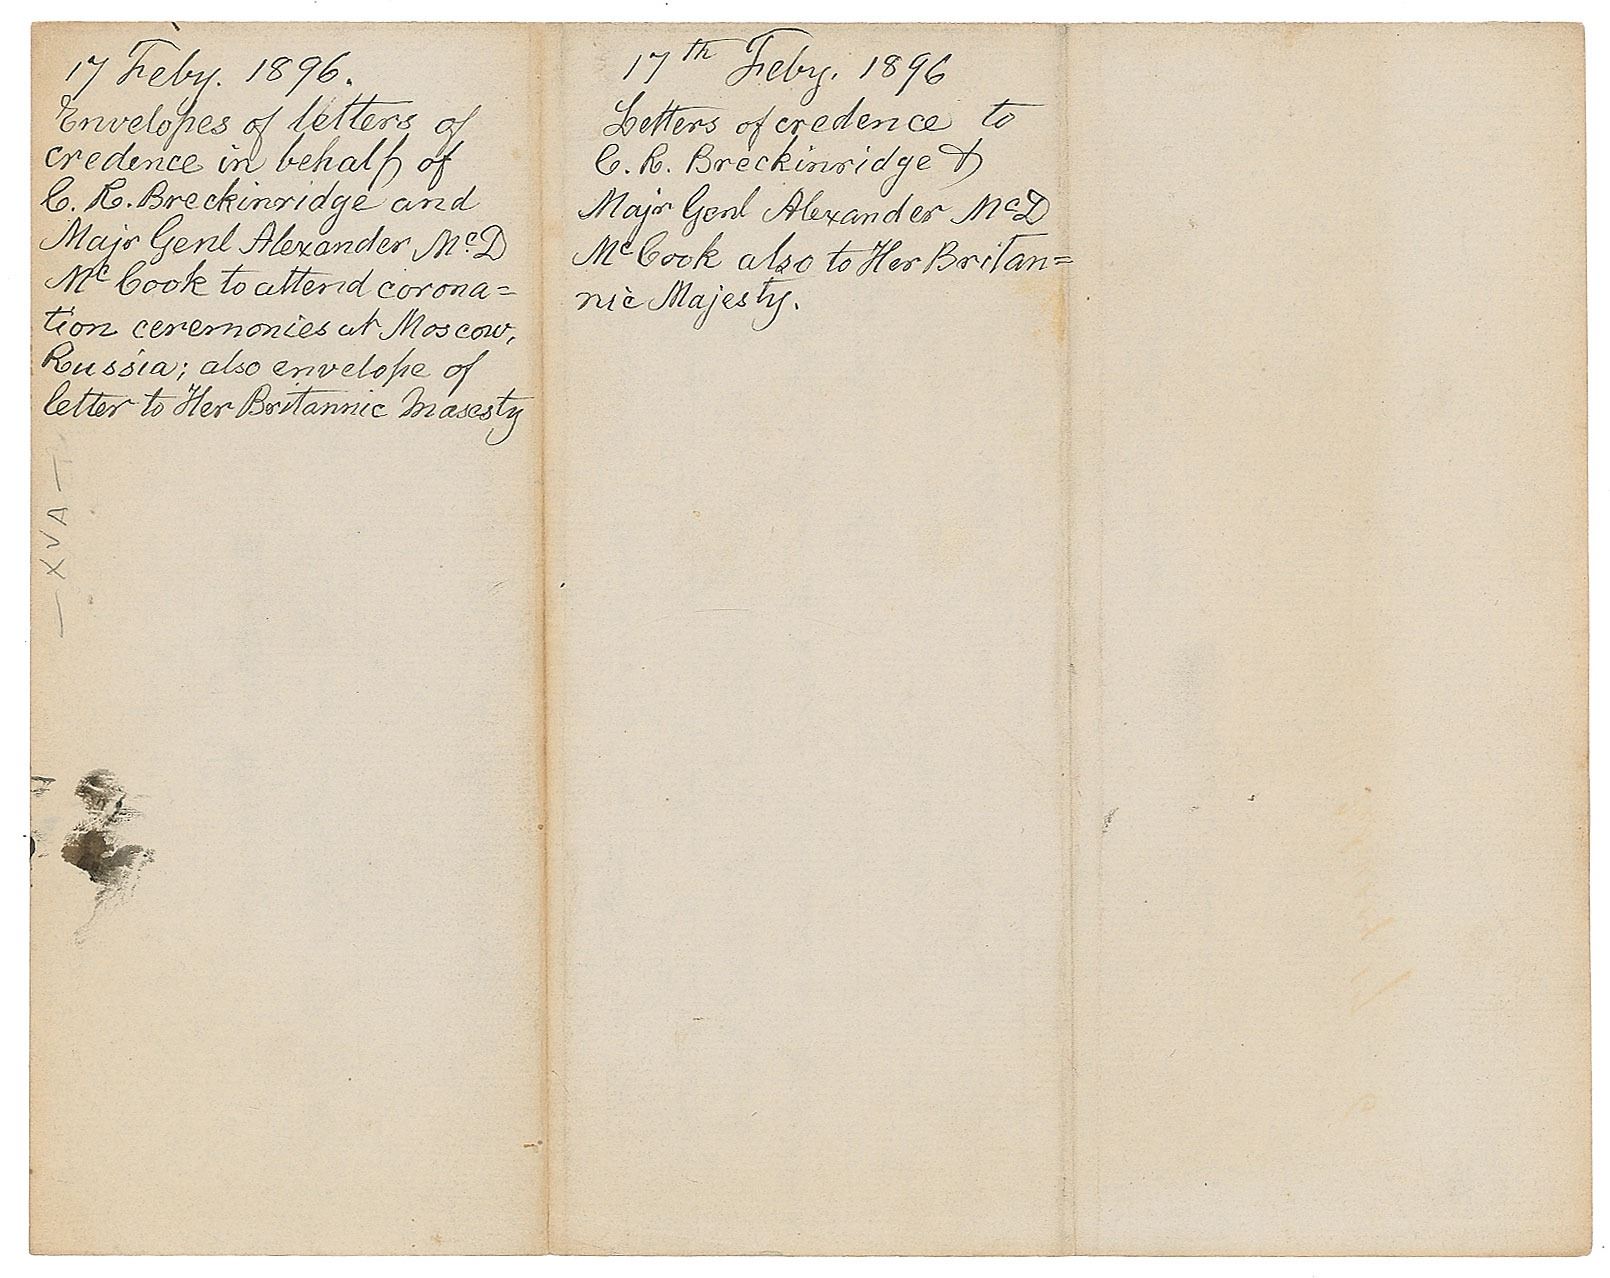 17 Feby. 1896.
Envelopes of letters of
credence in behalf of
C. R. Breckinridge and
Majr Genl Alexander McD
McCook to attend corona=
tion ceremonies at Moscow,
Russia; also envelope of
letter to Her Britannic Masesty
— XVA —
17th Feby. 1896
Letters of credence to
C. R. Breckinridge &
Majr Genl Alexander McD
McCook also to Her Britan=
nic Majesty.